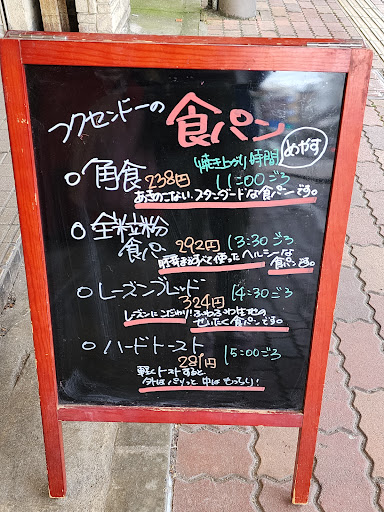 フクセンドーの 食パン
焼き上がり時間 めやす
○ 角食 238円 11:00ごろ
あきのこない、スタンダードな食パンです。
○ 全粒粉食パン 292円 13:30ごろ
使ったヘルシーな食パンです。
○ レーズンブレッド 324円 14:30ごろ
レーズンにこだわり!ふわふわ生地の
ぜいたく食パンです。
○ ハードトースト 281円 15:00ごろ
軽くトーストすると
外はパリッと 中はもっちり!